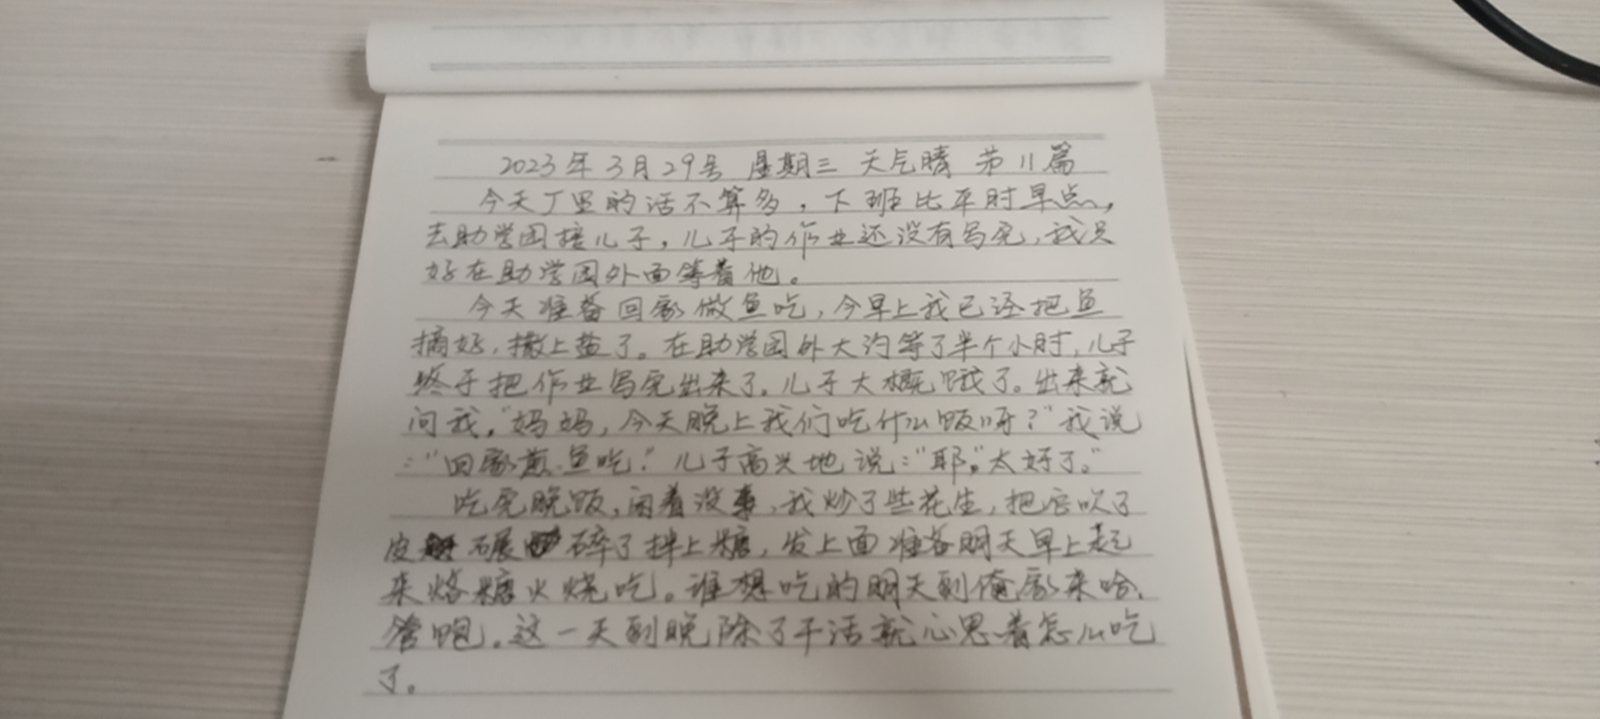 2023年3月29号 星期三 天气晴 第11篇
今天丁里的话不算多，下班比平时早点，
去助学园接儿子，儿子的作业还没有写完，我只
好在助学园外面等着他。
今天准备回家做鱼吃，今早上我已经把鱼
摘好，撒上盐了。在助学园外大约等了半个小时，儿子
终于把作业写完出来了。儿子大概饿了。出来就
问我，“妈妈，今天晚上我们吃什么饭呀？”我说
：“回家煎鱼吃。”儿子高兴地说：“耶，太好了。”
吃完晚饭，闲着没事，我炒了些花生，把它吹了
皮碾碎了拌上糖，发上面准备明天早上起
来烙糖火烧吃。谁想吃的明天到俺家来哈，
管饱。这一天到晚除了干活就心思着怎么吃
了。